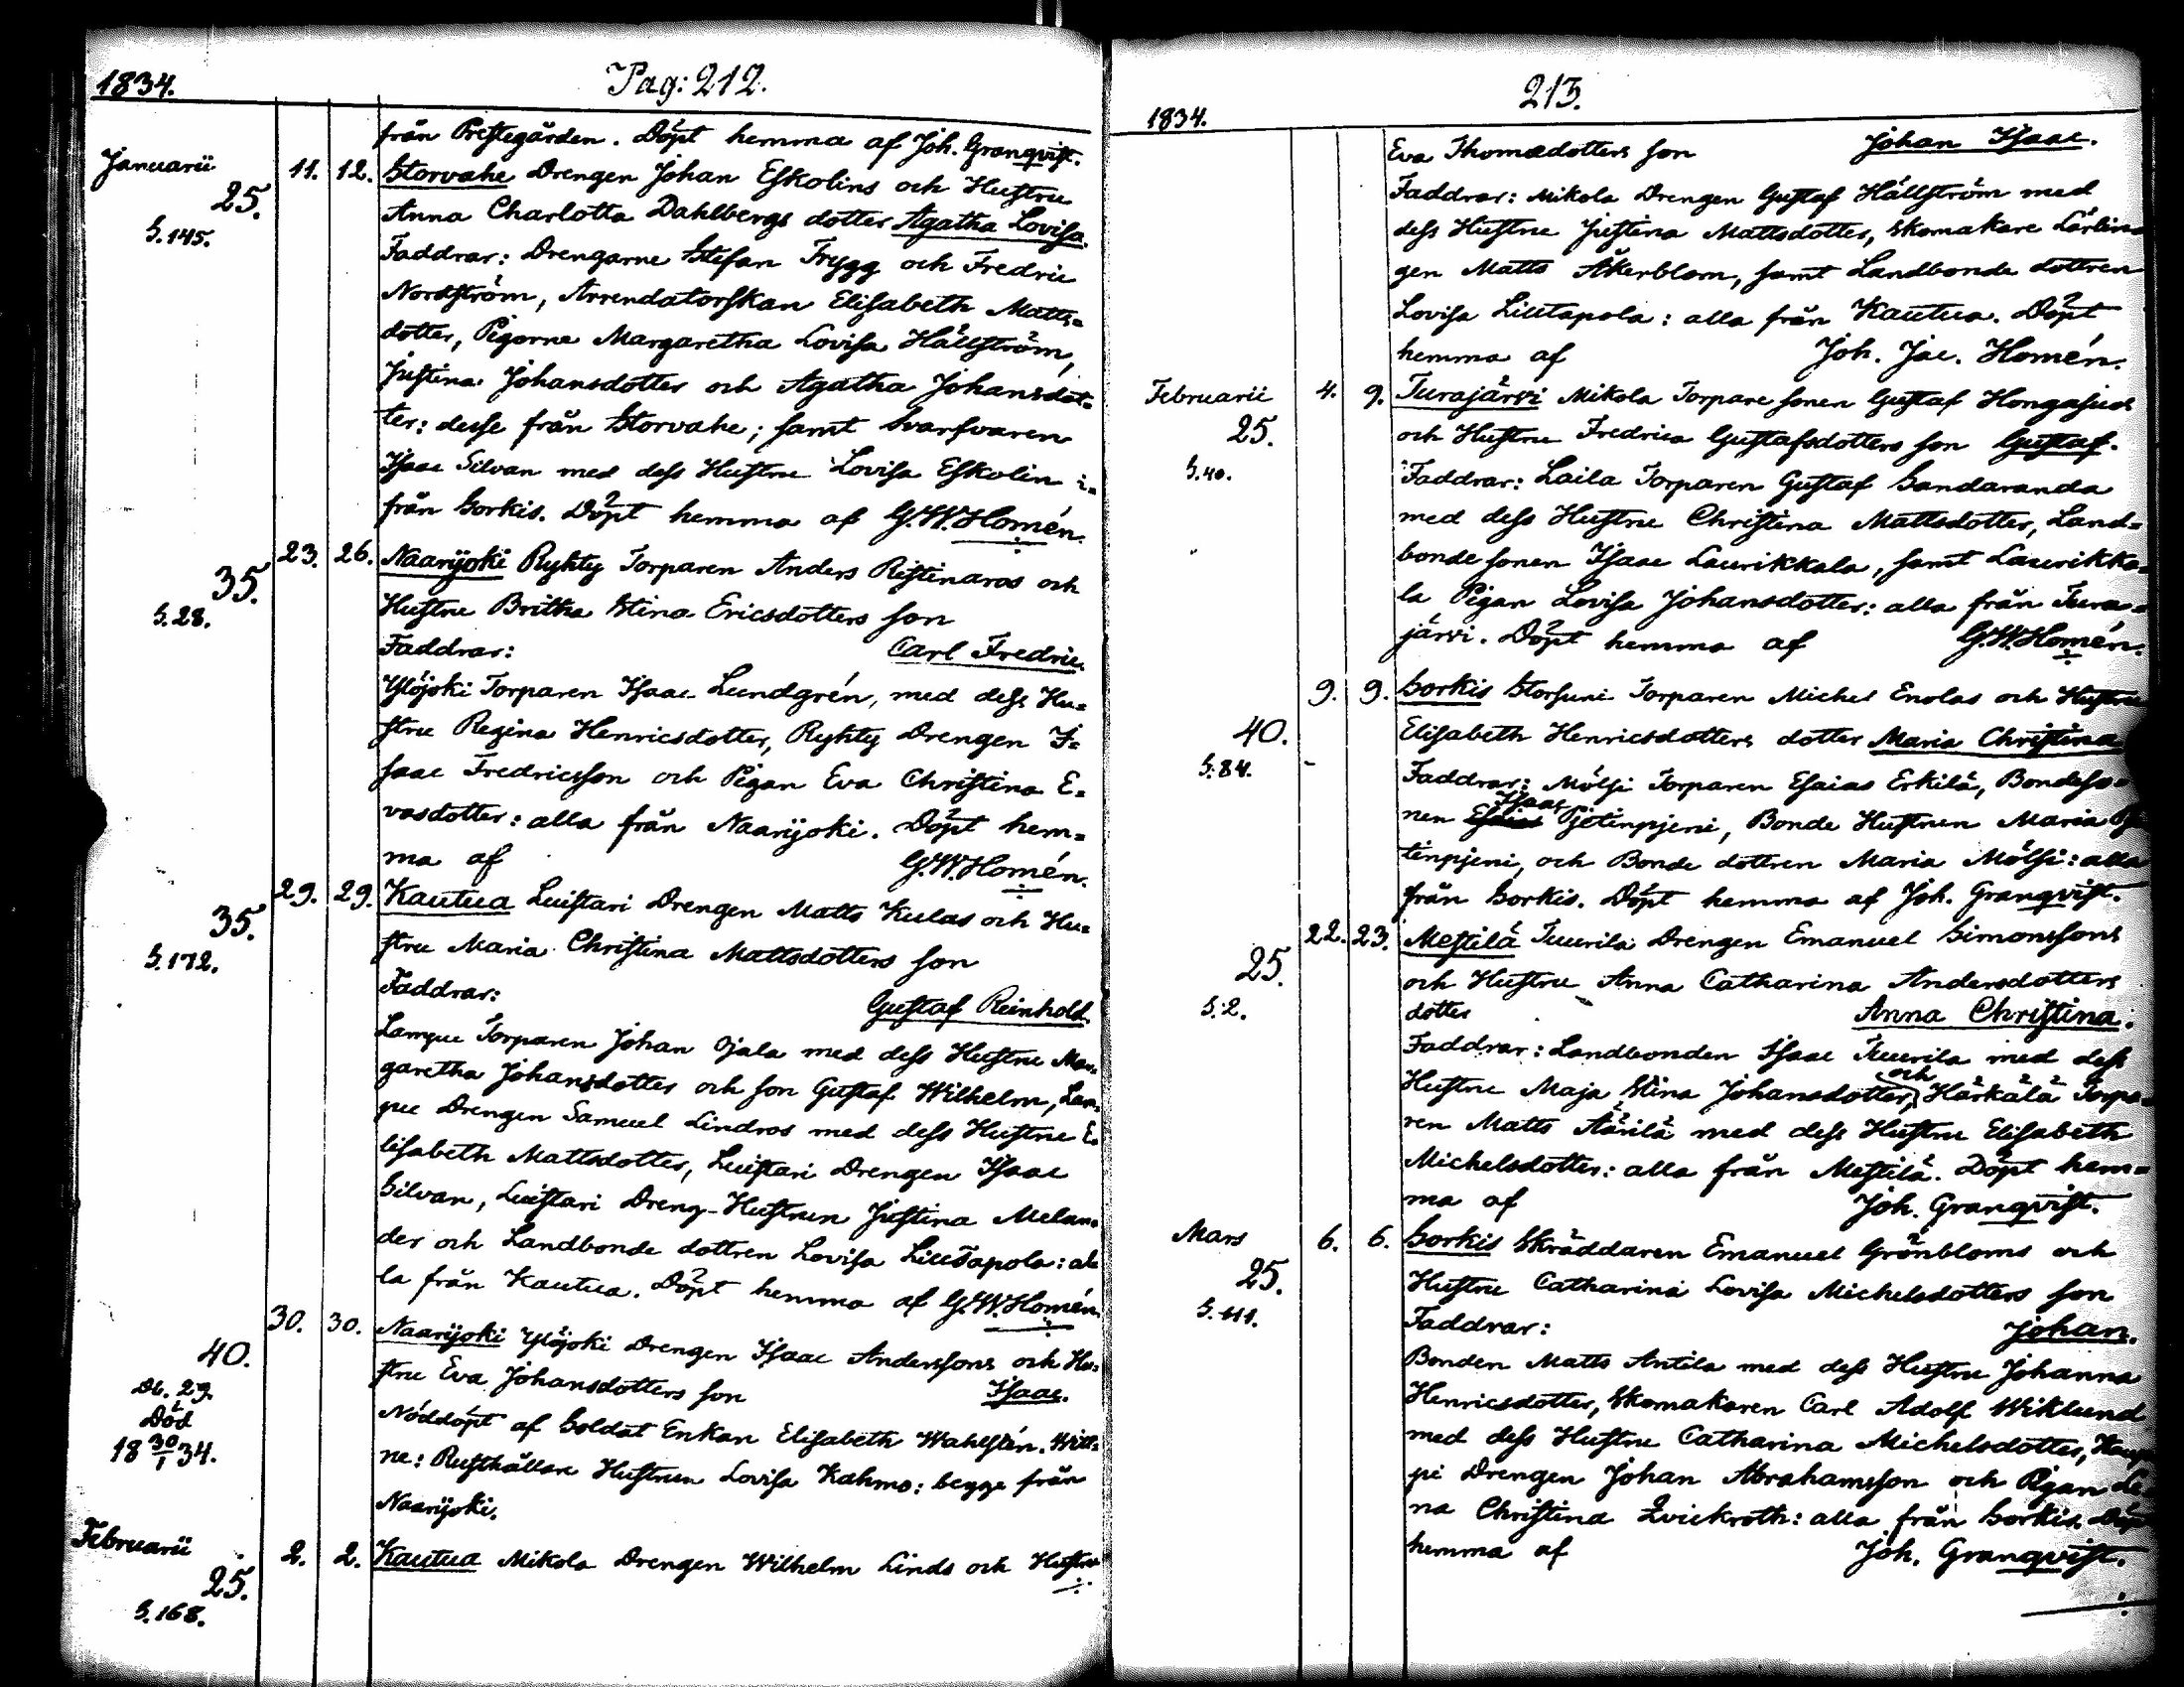 1834.
Pag: 212.
från Prestegården. Döpt hemma af Joh. Granqvist.
Januarii 11. 12. Storvahe Drengen Johan Eskolins och Hustru
25. Anna Charlotta Dahlbergs dotter Agatha Lovisa.
S. 145. Faddrar: Drengarne Stefan Trygg och Fredric
Nordström, Arrendatorskan Elisabeth Matts=
dotter, Pigorne Margaretha Lovisa Hällström,
Justina Johansdotter och Agatha Johansdot=
ter: desse från Storvahe; samt Svarfvaren
Isaac Silvan med dess Hustru Lovisa Eskolin i=
från Sorkis. Döpt hemma af G.W. Homén.
23. 26. Naarijoki Ryhty Torparen Anders Ristinaros och
35. Hustru Britha Stina Ericsdotters son
S. 28. Faddrar: Carl Fredric.
Ylöjoki Torparen Isaac Lundgrén, med dess Hu=
stru Regina Henricsdotter, Ryhty Drengen I=
saac Fredricsson och Pigan Eva Christina E=
vasdotter: alla från Naarijoki. Döpt hem=
ma af G.W. Homén.
29. 29. Kautua Luistari Drengen Matts Kulas och Hu=
35. stru Maria Christina Mattsdotters son
S. 172. Faddrar: Gustaf Reinhold.
Lampu Torparen Johan Ojala med dess Hustru Mar=
garetha Johansdotter och son Gustaf Wilhelm, Lam=
pu Drengen Samuel Lindros med dess Hustru E=
lisabeth Mattsdotter, Luistari Drengen Isaac
Silvan, Luistari Dreng-Hustrun Justina Melan=
der och Landbonde dottren Lovisa Liutapola: al=
la från Kautua. Döpt hemma af G.W. Homén.
30. 30. Naarijoki Ylöjoki Drengen Isaac Anderssons och Hu=
40. stru Eva Johansdotters son Isaac.
Db. 29. Nöddöpt af Soldat Enkan Elisabeth Wahlstén. Witt=
Död ne: Rusthållare Hustrun Lovisa Kahmo: begge från
18 30/1 34. Naarijoki.
Februarii 2. 2. Kautua Mikola Drengen Wilhelm Linds och Hustru
25.
S. 168.
213.
1834.
Eva Thomasdotters son Johan Isaac.
Faddrar: Mikola Drengen Gustaf Hällström med
dess Hustru Justina Mattsdotter, Skomakare Lärlin=
gen Matts Åkerblom, samt Landbonde dottren
Lovisa Liutapola: alla från Kautua. Döpt
hemma af Joh. Jac. Homén.
Februarii 4. 9. Turajärvi Mikola Torpare sonen Gustaf Hongasuos
25. och Hustru Fredrica Gustafsdotters son Gustaf.
S. 40. Faddrar: Laila Torparen Gustaf Sandaranda
med dess Hustru Christina Mattsdotter, Land=
bonde sonen Isaac Laurikkala, samt Laurikka=
la Pigan Lovisa Johansdotter: alla från Tura=
järvi. Döpt hemma af G.W. Homén.
9. 9. Sorkis Storsuni Torparen Michel Enolas och Hustru
40. Elisabeth Henricsdotters dotter Maria Christina
S. 84. Faddrar: Mölsi Torparen Esaias Erkilä, Bondeso=
nen Isaac Pjetinpjeni, Bonde Hustrun Maria Pje
tinpjeni, och Bonde dottren Maria Mölsi: alla
från Sorkis. Döpt hemma af Joh. Granqvist.
22. 23. Mestilä Tuurila Drengen Emanuel Simonssons
25. och Hustru Anna Catharina Andersdotters
S. 2. dotter Anna Christina.
Faddrar: Landbonden Isaac Tuurila med dess
Hustru Maja Stina Johansdotter, och Härkälä Torpa=
ren Matts Äärilä med dess Hustru Elisabeth
Michelsdotter: alla från Mestilä. Döpt hem=
ma af Joh. Granqvist.
Mars 6. 6. Sorkis Skräddaren Emanuel Grönbloms och
25. Hustru Catharina Lovisa Michelsdotters son
S. 111. Faddrar: Johan.
Bonden Matts Antila med dess Hustru Johanna
Henricsdotter, Skomakaren Carl Adolf Wiklund
med dess Hustru Catharina Michelsdotter,
pi Drengen Johan Abrahamsson och Pigan Le=
na Christina Zvickroth: alla från Sorkis. Döpt
hemma af Joh. Granqvist.